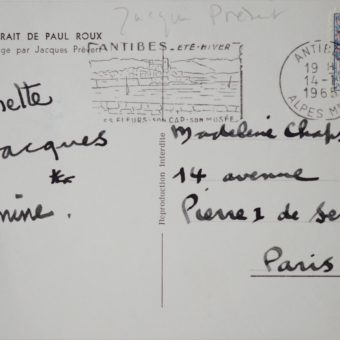 Jacques Prévert
RAIT DE PAUL ROUX
ge par Jacques Prévert
ANTIBES - ÉTÉ-HIVER
SES FLEURS-SON CAP-SON MUSÉE
ANTIBE
19 H
14-1
1965
ALPES M
nette
Jacques
mine.
Reproduction Interdite
Madeleine Chaps
14 avenue
Pierre I de Se
Paris